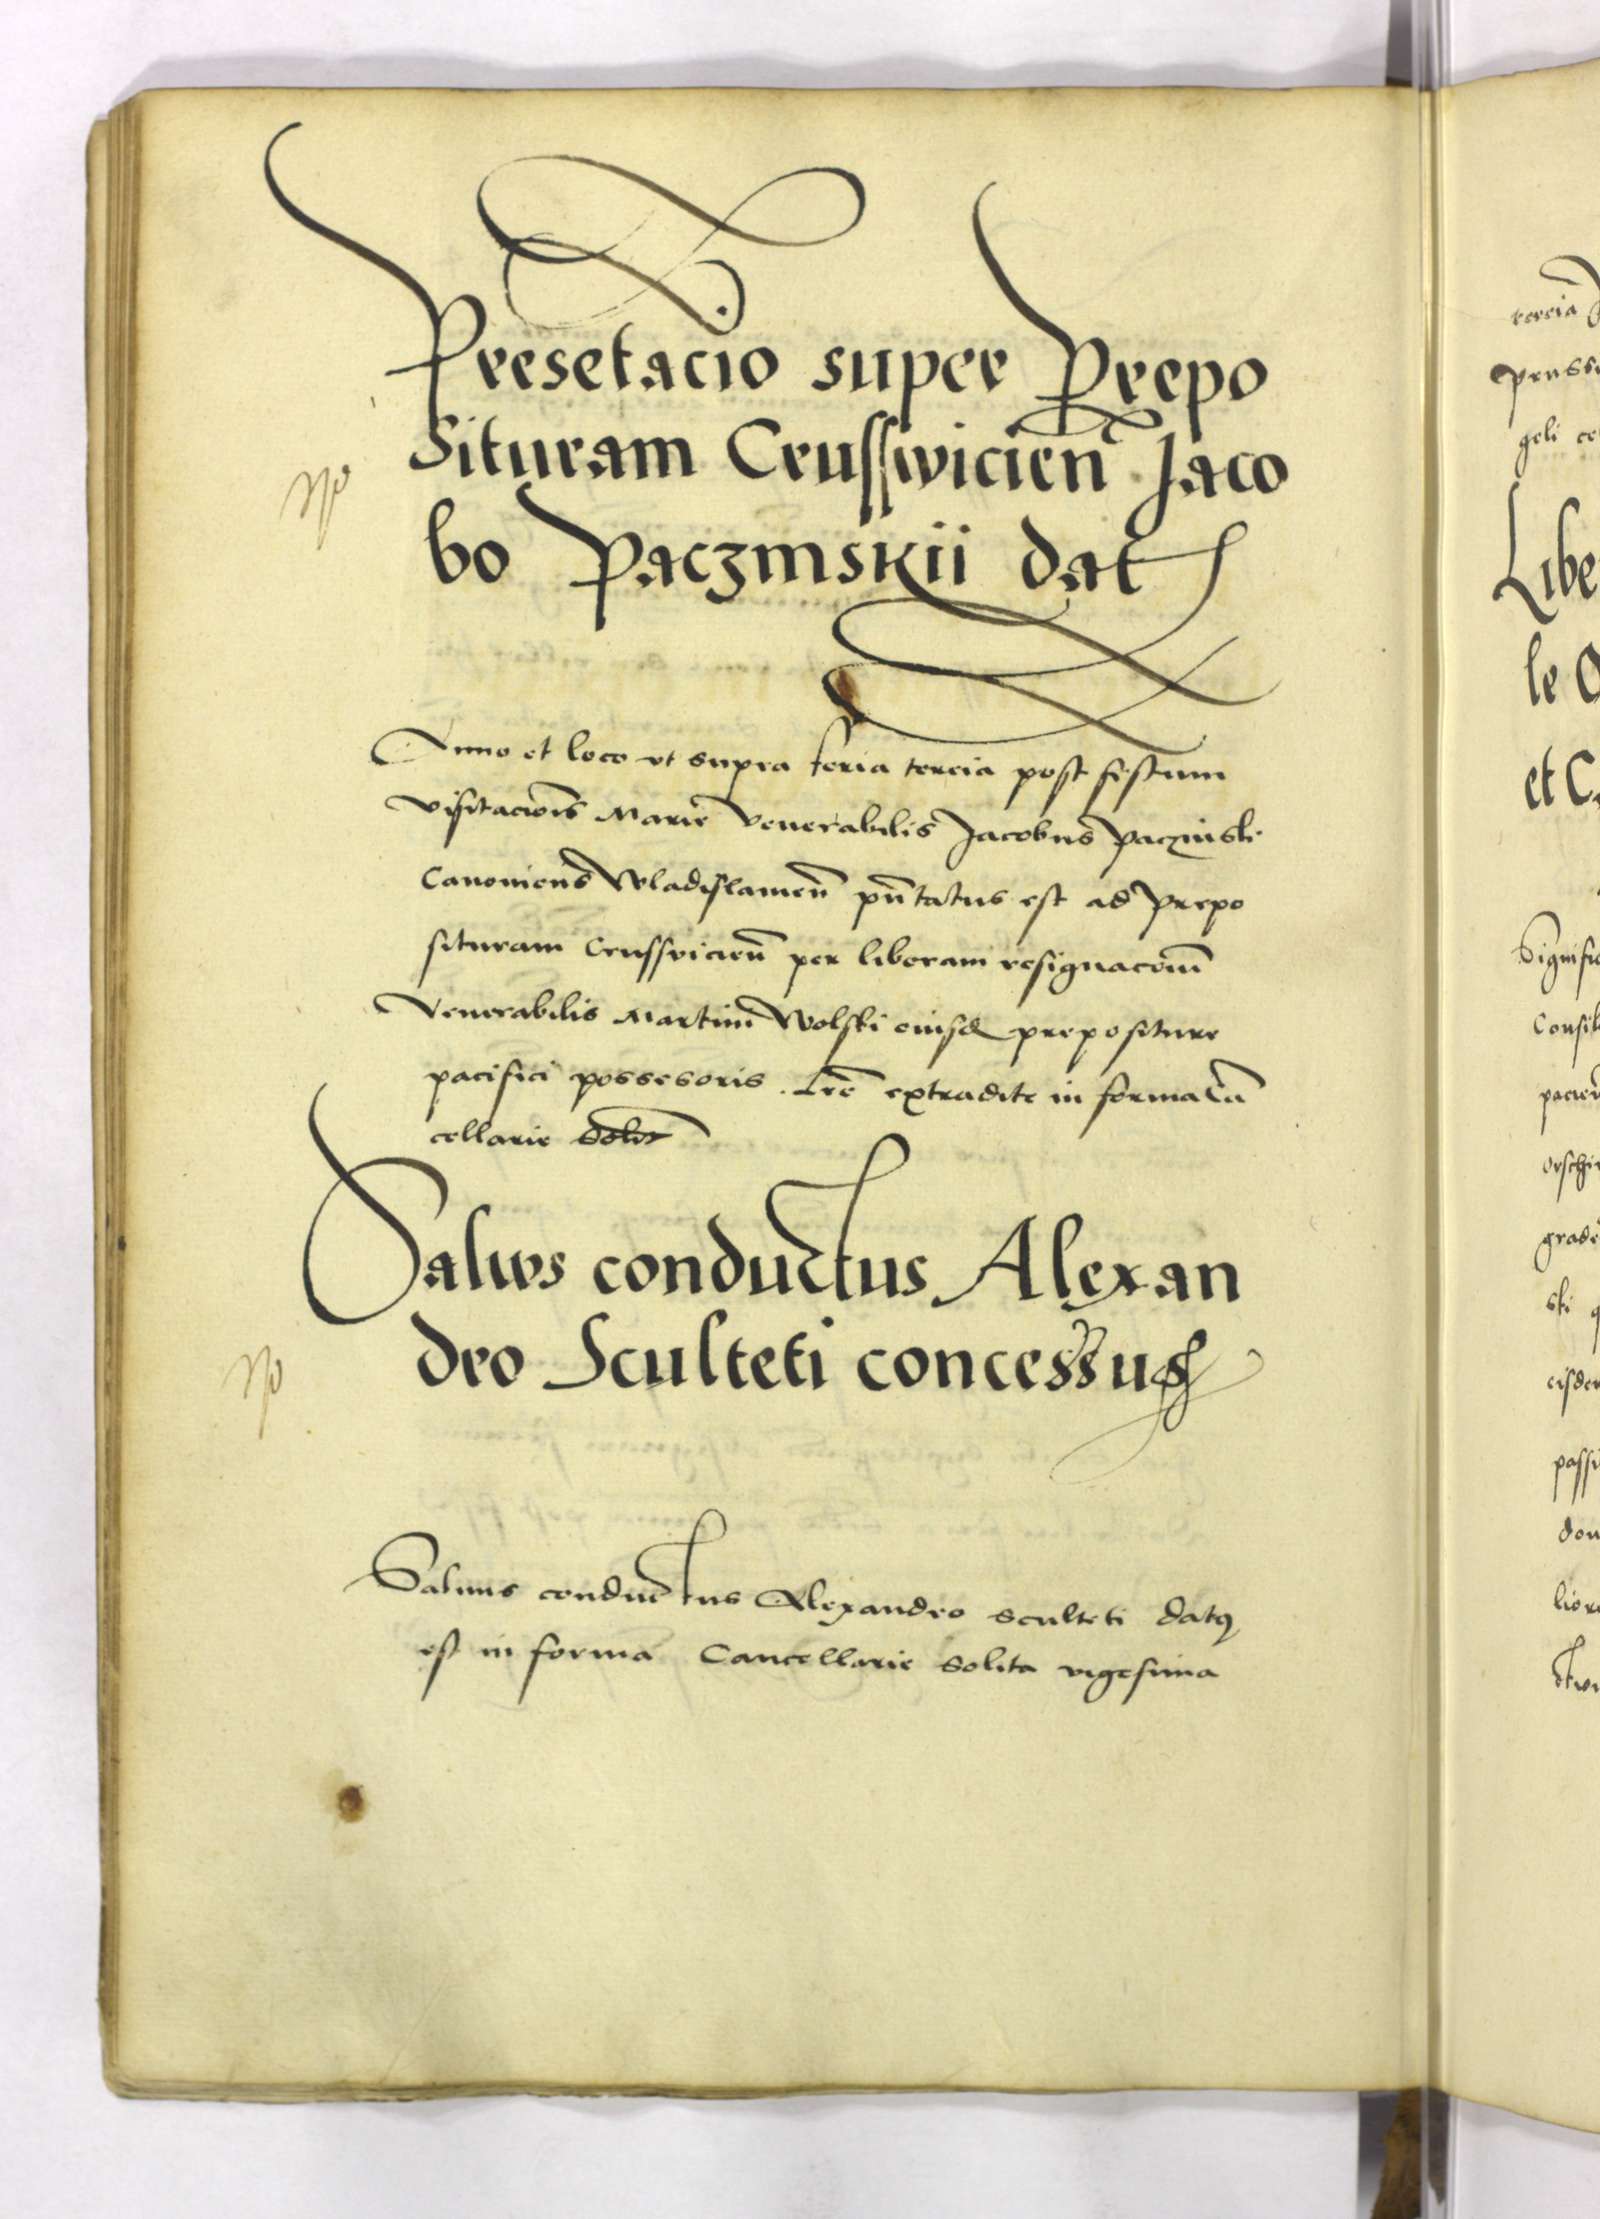 Presetacio super Prepo
situram Crusswicien̄ Jaco
bo Paczinskii dat
No
Anno et loco vt supra feria tercia post festum
visitacīonis Marie Venerabilis Jacobus Paczinski
Canonicus Wladislawien̄ pn̄tatus est ad Prepo
situram Crussvicien̄ per liberam resignacōm
Venerabilis Martini Wolski eiusd prepositure
pacifici possesoris. Lrē extradite in forma Cā
cellarie solit
Salws conductus Alexan
dro Sculteti concessus
No
Saluus conductus Alexandro sculteti datꝰ
est in forma Cancellarie solita vigesima
tercia
pruss
geli
Libe
le
et C
Signific
Consil
pacien
orschi
grad
ski
eisde
passi
don
lior